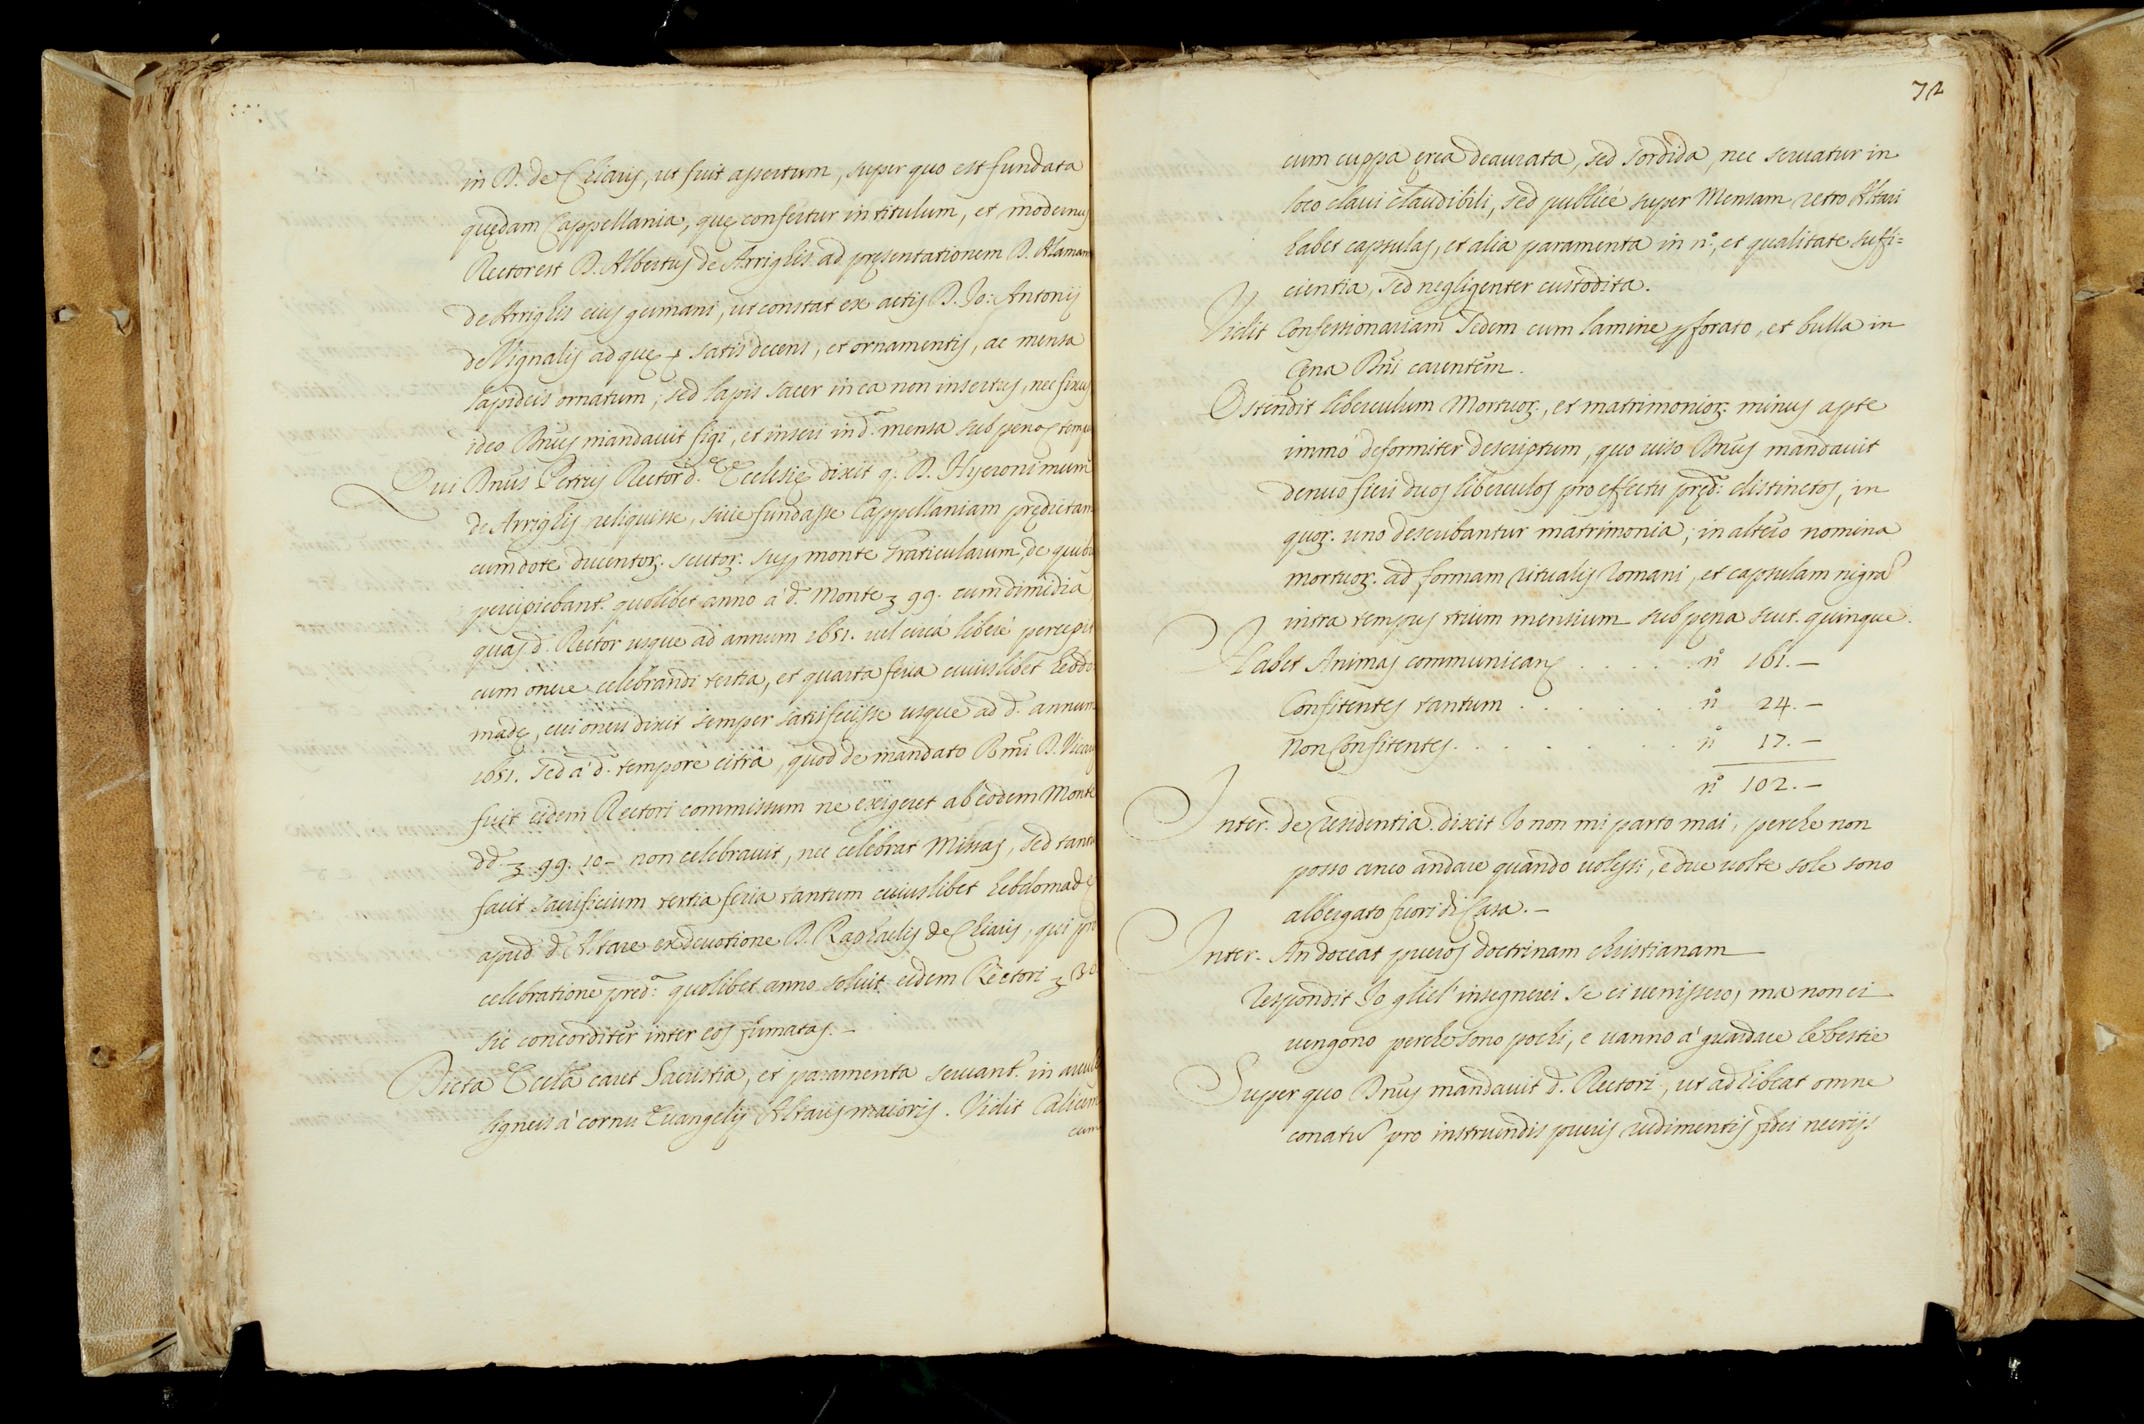 in D. de Clarijs, ut fuit assertum, super quo est fundata
quędam Cappellania, quę confertur in titulum, et modernus
Rector est D. Albertus de Arrighis ad pręsentationem D. Alamani
de Arrighis eius germani, ut constat ex actis D. Jo: Antonij
de Vignalis ad quę + satis decens, et ornamentis, ac mensa
lapideis ornatum; sed lapis sacer in ea non insertus, nec fixus
ideo Dnus mandauit figi, et inseri in d.a mensa sub penis
Qui Dnus Petrus Rector d. Ecclesię dixit q. D. Hyeronimum
de Arrighis reliquisse, siue fundasse Cappellaniam prędictam
cum dote ducentoꝝ. scutoꝝ. sup monte Graticularum, de quibus
percipiebant. quolibet anno a' d. Monte ʒ 99. cum dimidia
quas d. Rector usque ad annum 1651. uel circa libere percepit
cum onere celebrandi tertia, et quarta feria cuiuslibet hebdo
madę, cui oneri dixit semper satisfecisse usque ad d. annum
1651. sed a' d. tempore citra, quod de mandato Rmi D. Vicarij
fuit eidem Rectori commissum ne exigeret ab eodem Monte
dd. ʒ 99. 10 - non celebrauit, nec celebrat Missas, sed tantu
facit sacrificium tertia feria tantum cuiuslibet hebdomadę
apud d. Altare ex deuotione D. Raphaelis de Clarijs, qui pro
celebratione pred.a quolibet anno soluit eidem Rectori ʒ 30
sic concorditer inter eos firmatas. -
Dicta Eccla caret Sacristia, et paramenta seruant. in
ligneis a' cornu Euangelij Altaris maioris. Vidit Calicem
cum
72
cum cuppa ęrea deaurata, sed sordida, nec seruatur in
loco claui claudibili, sed publicé super Mensam retro Altari
habet capsulas, et alia paramenta in no., et qualitate suffi=
cientia, sed negligenter custodita.
Vidit Confessionariam sedem cum lamine pforato, et bulla in
Cęna Dni cauentem.
Ostendit liberculum Mortuoꝝ., et matrimonioꝝ. minus apte
immó deformiter descriptum, quo uiso Dnus mandauit
denuo fieri duos liberculos pro effectu pręd.o distinctos, in
quoꝝ. uno describantur matrimonia, in altero nomina
mortuoꝝ. ad formam ritualis romani, et capsulam nigra
intra tempus trium mensium sub pęna scut. quinque.
Habet Animas communicans . . . . . no 161. -
Confitentes tantum . . . . . . no 24. -
Non Confitentes . . . . . . . no 17. -
no 102. -
Inter. de residentia. dixit Io non mi parto mai, perche non
posso anco andare quando uolessi, e due uolte sole sono
albergato fuori di Casa. -
Inter. An doceat pueros doctrinam christianam
respondit Io gliel' insegnerei se ci uenissero, ma non ci
uengono perche sono pochi, e uanno a' guardare le bestie
Super quo Dnus mandauit d. Rectori, ut adhibeat omne
conatu pro instruendis pueris rudimentis fidei necrijs